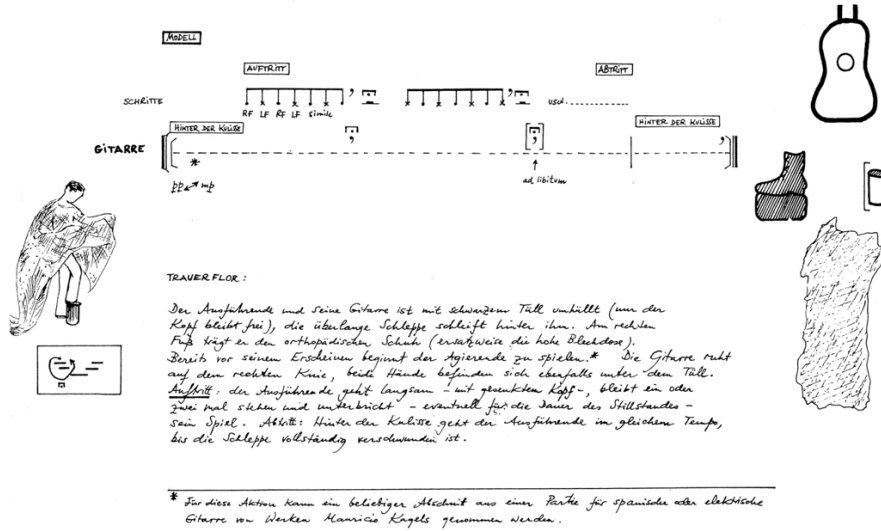 MODELL
AUFTRITT
ABTRITT
SCHRITTE
usw.
RF LF RF LF simile
HINTER DER KULISSE
HINTER DER KULISSE
GITARRE
*
pp mp
ad libitum
TRAUERFLOR:
Der Ausführende und seine Gitarre ist mit schwarzem Tüll umhüllt (nur der
Kopf bleibt frei), die überlange Schleppe schleift hinter ihm. Am rechten
Fuß trägt er den orthopädischen Schuh (ersatzweise die hohe Blechdose).
Bereits vor seinem Erscheinen beginnt der Agierende zu spielen.* Die Gitarre ruht
auf dem rechten Knie, beide Hände befinden sich ebenfalls unter dem Tüll.
Auftritt: der Ausführende geht langsam – mit gesenktem Kopf –, bleibt ein oder
zwei mal stehen und unterbricht – eventuell für die Dauer des Stillstandes –
sein Spiel. Abtritt: Hinter der Kulisse geht der Ausführende im gleichen Tempo,
bis die Schleppe vollständig verschwunden ist.
* Für diese Aktion kann ein beliebiger Abschnitt aus einer Partie für spanische oder elektrische
Gitarre von Werken Mauricio Kagels genommen werden.